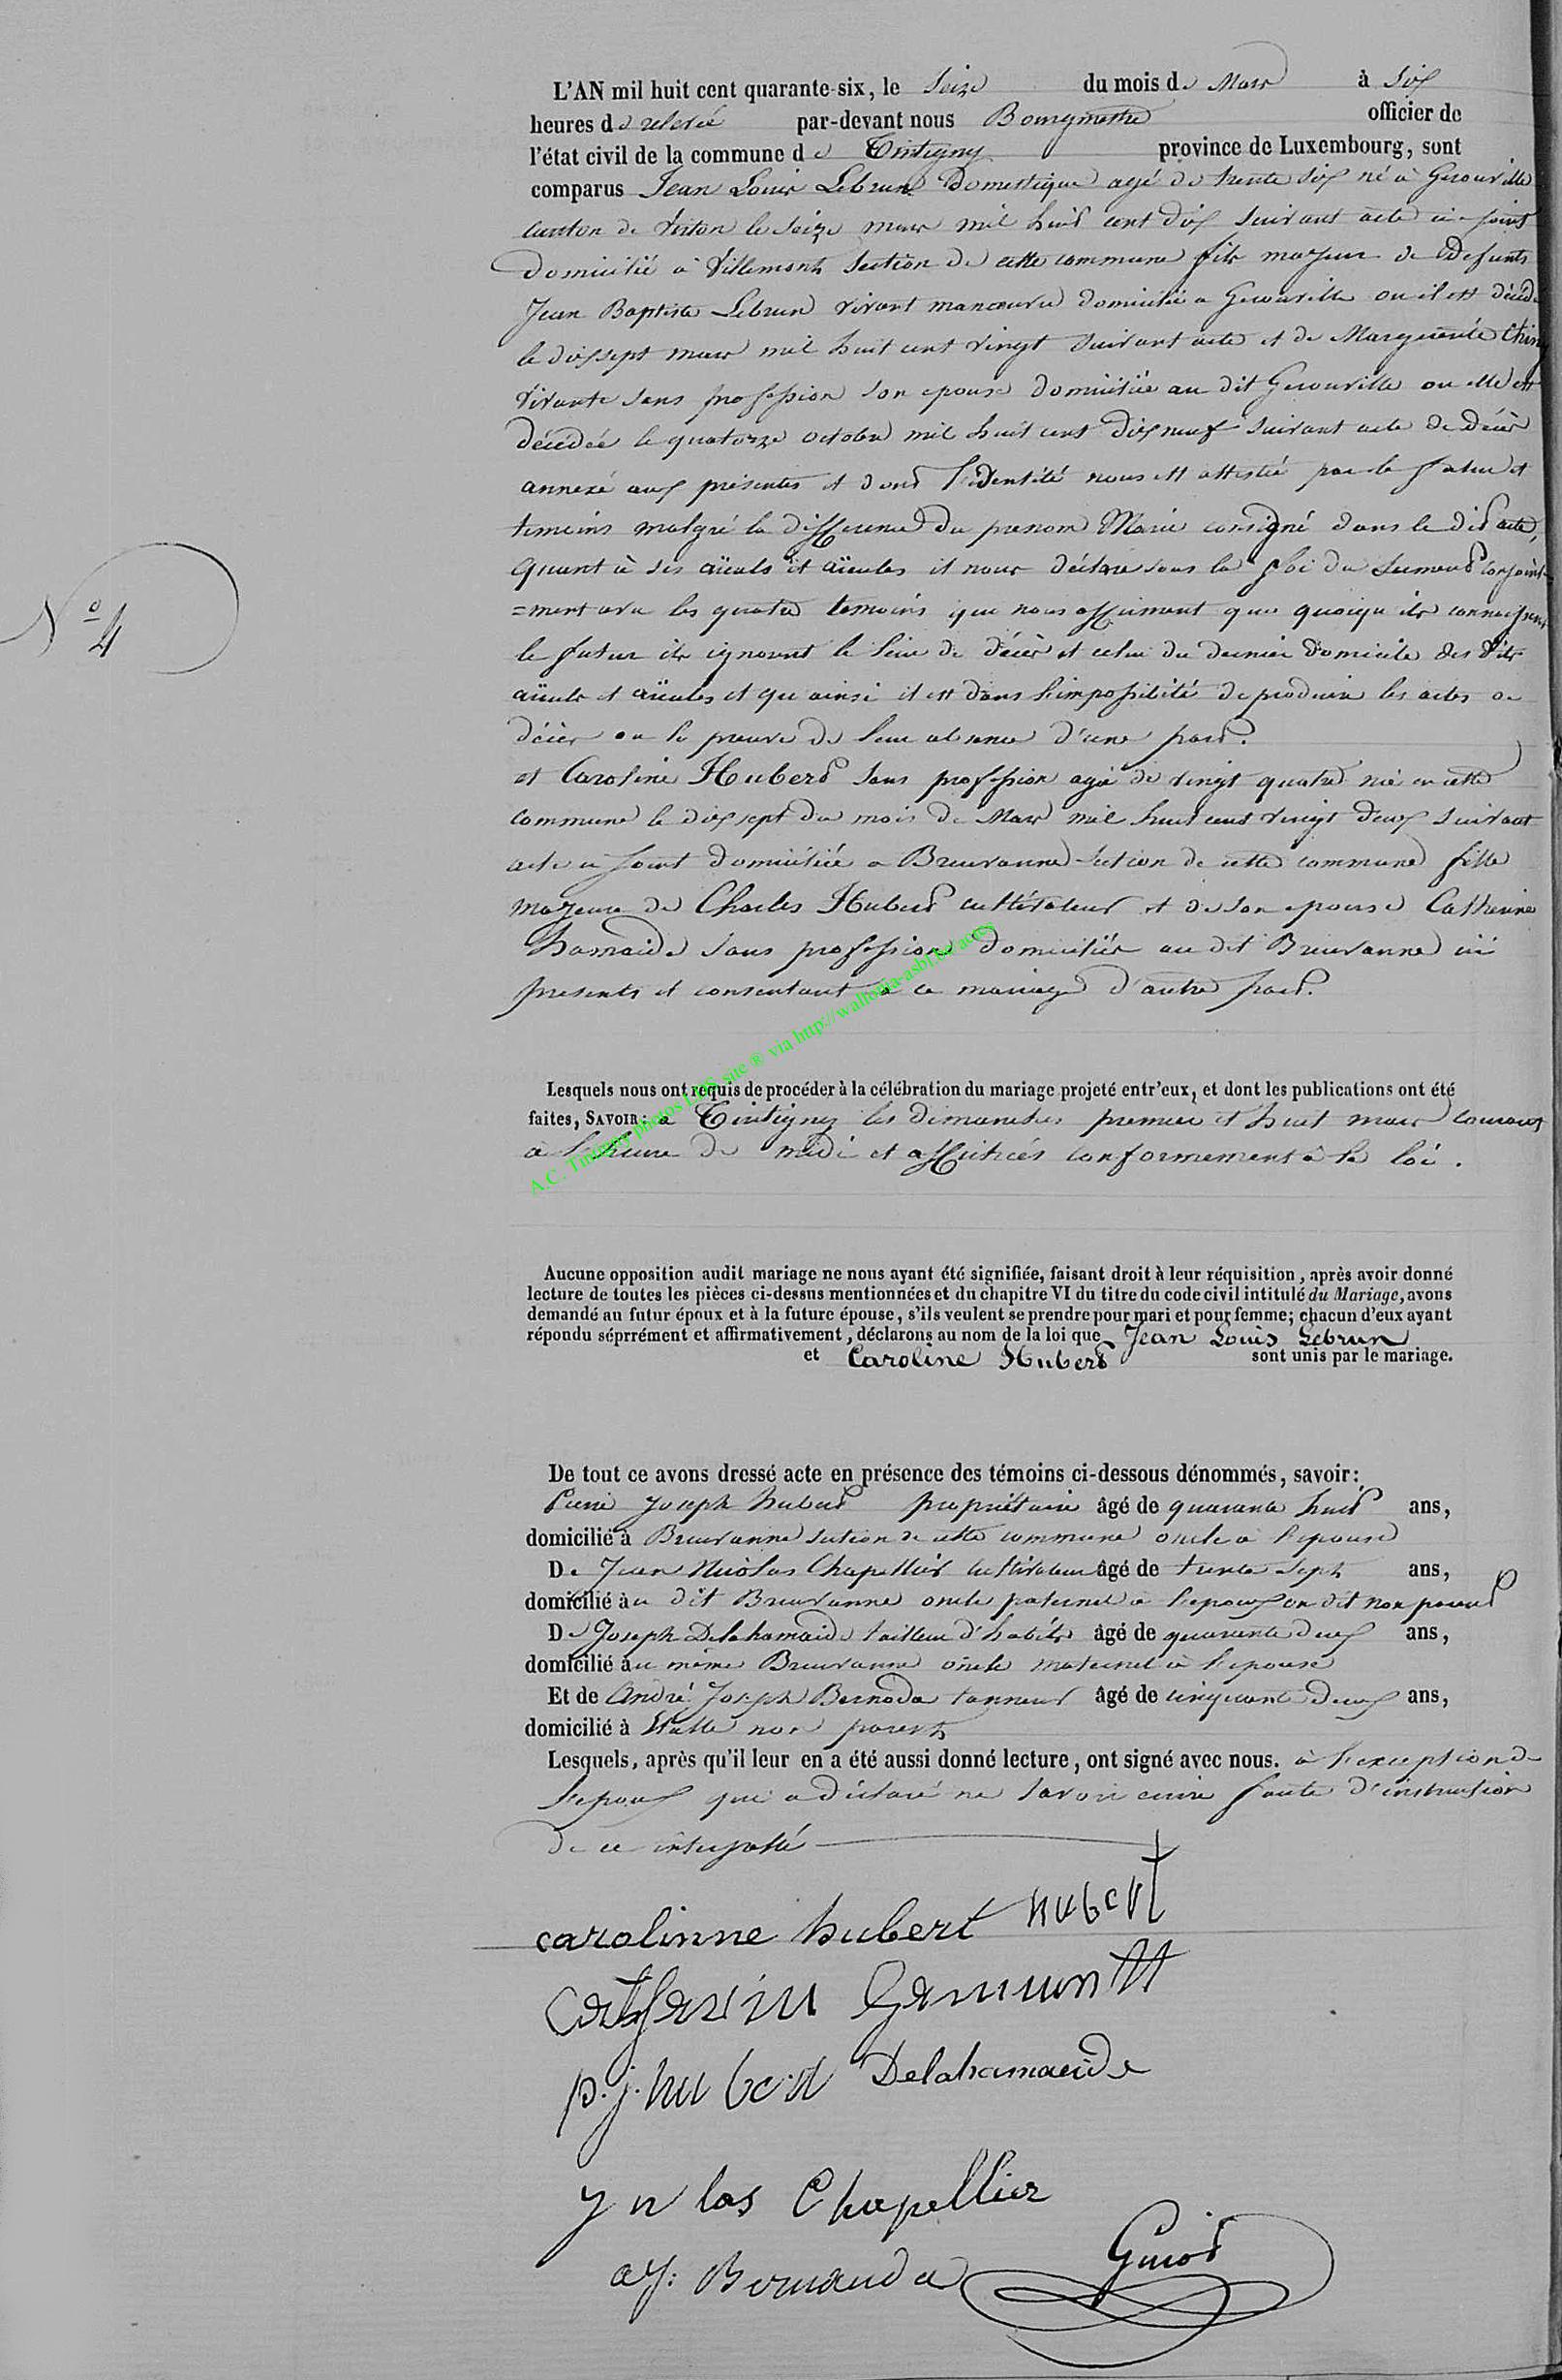 L'AN mil huit cent quarante-six, le Seize du mois de Mars à Six
heures de relevée par-devant nous Bourgmestre officier de
l'état civil de la commune de Tintigny province de Luxembourg, sont
comparus Jean Louis Lebrun Domestique agé de trente six né à Gerouville
canton de Virton le seize mars mil huit cent dix suivant acte ci-joint
domicilié à Villemont section de cette commune fils majeur de Defunts
Jean Baptiste Lebrun vivant manoeuvre domicilié a Gerouville ou il est décédé
le dix sept mars mil huit cent vingt suivant acte et de Marguerite
vivante sans profession son epouse domiciliée au dit Gerouville ou elle est
décédée le quatorze octobre mil huit cent dix neuf suivant acte de décès
annexé aux présentes et dont l'identité nous est attestée par le futur et
temoins malgré la difference du prenom Marie consigné dans le dit acte,
Quant à ses aïeuls et aïeules il nous déclare sous la foi du serment conjointe
=ment avec les quatre temoins que nous affirment que quoiqu'ils connaissent
le futur ils ignorent le lieu de décès et celui du dernier domicile des dits
aïeuls et aïeules et qu'ainsi il est dans l'impossibilité de produire les actes de
décès ou la preuve de leur absence d'une part.
et Caroline Hubert sans profession agée de vingt quatre née en cette
commune le dix sept du mois de Mars mil huit cent vingt deux suivant
acte ci joint domiciliée a Breuvanne section de cette commune fille
majeure de Charles Hubert cultivateur et de son epouse Catherine
hamaide sans profession domiciliés au dit Breuvanne ici
presents et consentant à ce mariage d'autre part.
N° 4
Lesquels nous ont requis de procéder à la célébration du mariage projeté entr'eux, et dont les publications ont été
faites, SAVOIR: a Tintigny les dimanches premier et huit mars courant
à l'heure de midi et affichées conformement à la loi.
A.C. Tintigny photos site ® via http://wallonia-asbl.be/actes
Aucune opposition audit mariage ne nous ayant été signifiée, faisant droit à leur réquisition, après avoir donné
lecture de toutes les pièces ci-dessus mentionnées et du chapitre VI du titre du code civil intitulé du Mariage, avons
demandé au futur époux et à la future épouse, s'ils veulent se prendre pour mari et pour femme; chacun d'eux ayant
répondu séprrément et affirmativement, déclarons au nom de la loi que Jean Louis Lebrun
et Caroline Hubert sont unis par le mariage.
De tout ce avons dressé acte en présence des témoins ci-dessous dénommés, savoir:
Pierre Joseph hubert propriétaire âgé de quarante huit ans,
domicilié à Breuvanne section de cette commune oncle à l'epouse
De Jean Nicolas Chapellier cultivateur âgé de trente sept ans,
domicilié au dit Breuvanne oncle paternel à l'epoux on dit non parent
De Joseph Delahamaide tailleur d'habits âgé de quarante deux ans,
domicilié au même Breuvanne oncle maternel à l'epouse
Et de André Joseph Bernada tanneur âgé de cinquante deux ans,
domicilié à Etalle non parent
Lesquels, après qu'il leur en a été aussi donné lecture, ont signé avec nous. à l'exception de
l'epoux qui a déclaré ne savoir ecrire faute d'instruction
de ce interpellé
carolinne hubert hubert
p. j. hubert Delahamaide
j n las Chapellier
aj: Bernanda